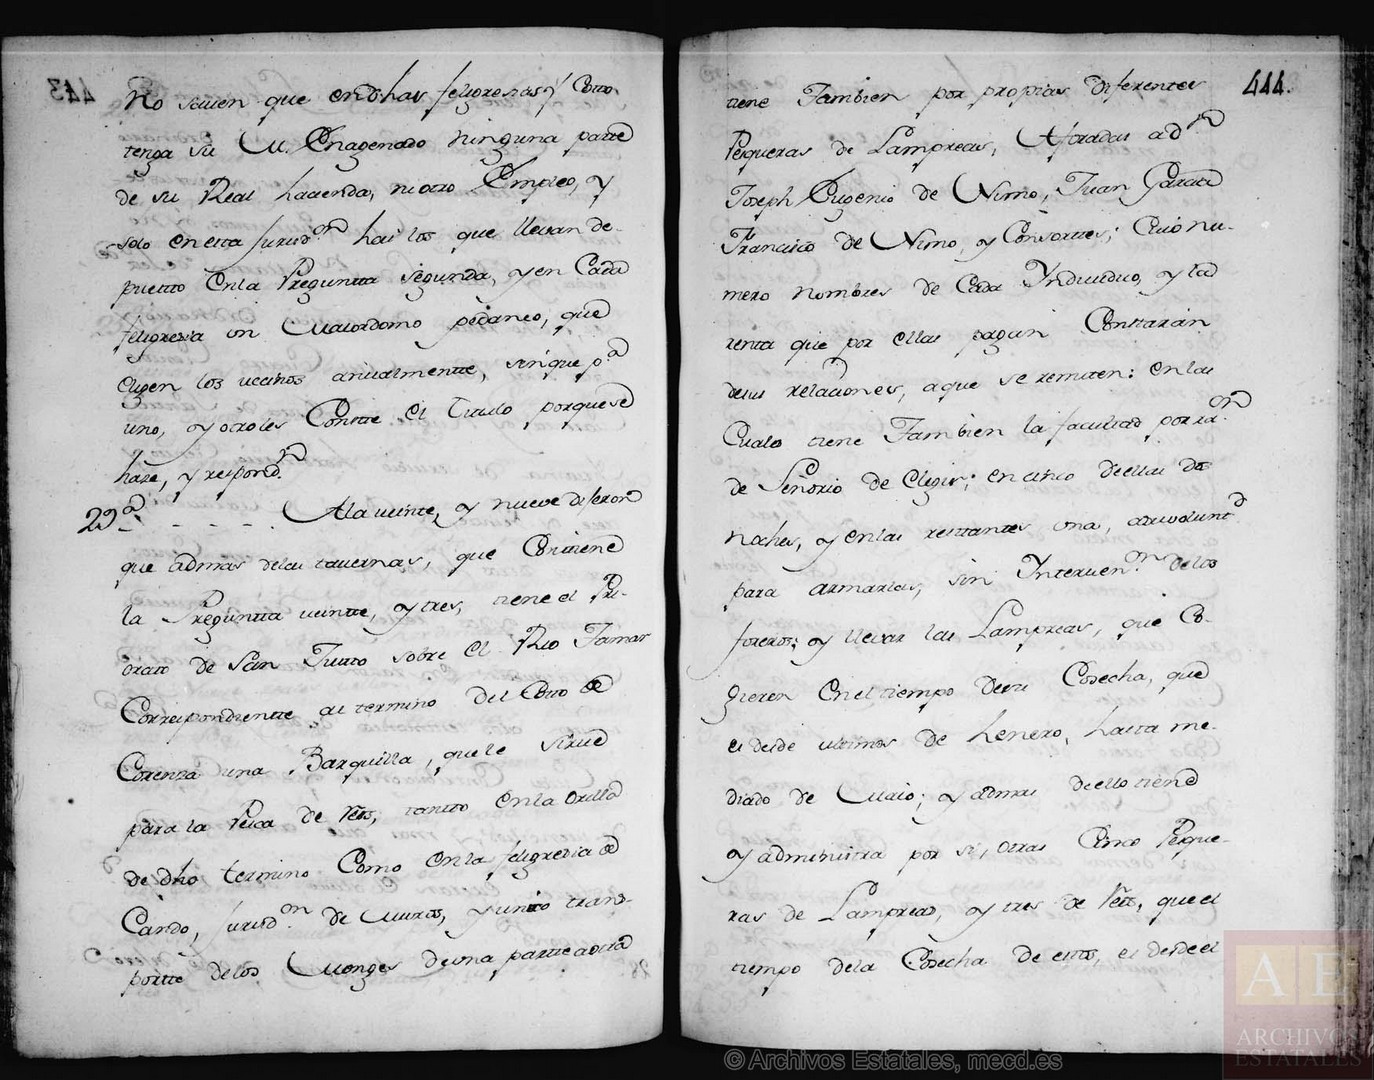 No sauen que en dhas feligresias y Coto
tenga su M. Enagenado ninguna parte
de su Real hacienda, ni otro Empleo, y
solo en esta Jurisdon. hai los que llevan de-
puesto en la Pregunta segunda, y en Cada
feligresia un Maiordomo pedaneo, que
eligen los vecinos anualmente, sin que pa.
uno, y otro les Conste el titulo porque se
haze, y respondn.
29a. - - - - - A la veinte, y nueve dijeron
que ademas de las tavernas, que Contiene
la Pregunta veinte, y tres, tiene el Pri-
orato de San Justo sobre el Rio Tamar
Correspondiente al termino del Coto de
una Barquilla, que le sirve
para la Pesca de Rs, tanto en la Orilla
de dho termino Como en la feligresia de
Jurisdon. de Muros, y unico trans-
porte de los Monges de una parte a otra
444.
tiene Tambien por propias diferentes
Pesqueras de Lampreas, Aforadas a dn
Joseph Eugenio de Nimo, Juan Garcia
Francisco de Nimo, y Consortes; Cuio nu-
mero nombres de Cada Individuo, y la
renta que por ellas pagan Constaran
de sus relaciones, a que se remiten: en las
Cuales tiene Tambien la facultad por ron.
de Señorio de elegir; en cinco de ellas dos
noches, y en las restantes una, a su voluntd.
para armarlas, sin Intervenon. de los
foreros; y llevar las Lampreas, que Co-
gieren en el tiempo de su Cosecha, que
es desde ultimos de Henero, hasta me-
diado de Maio; y ademas de ello tiene
y administra por si, otras Cinco Pesque-
ras de Lampreas, y tres de Rs, que el
tiempo de la Cosecha de estos, es desde el
AE
ARCHIVOS
ESTATALES
© Archivos Estatales, mecd.es